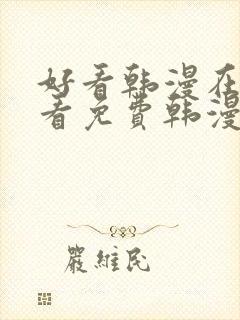 好看韩漫在
看免费韩漫
严维民